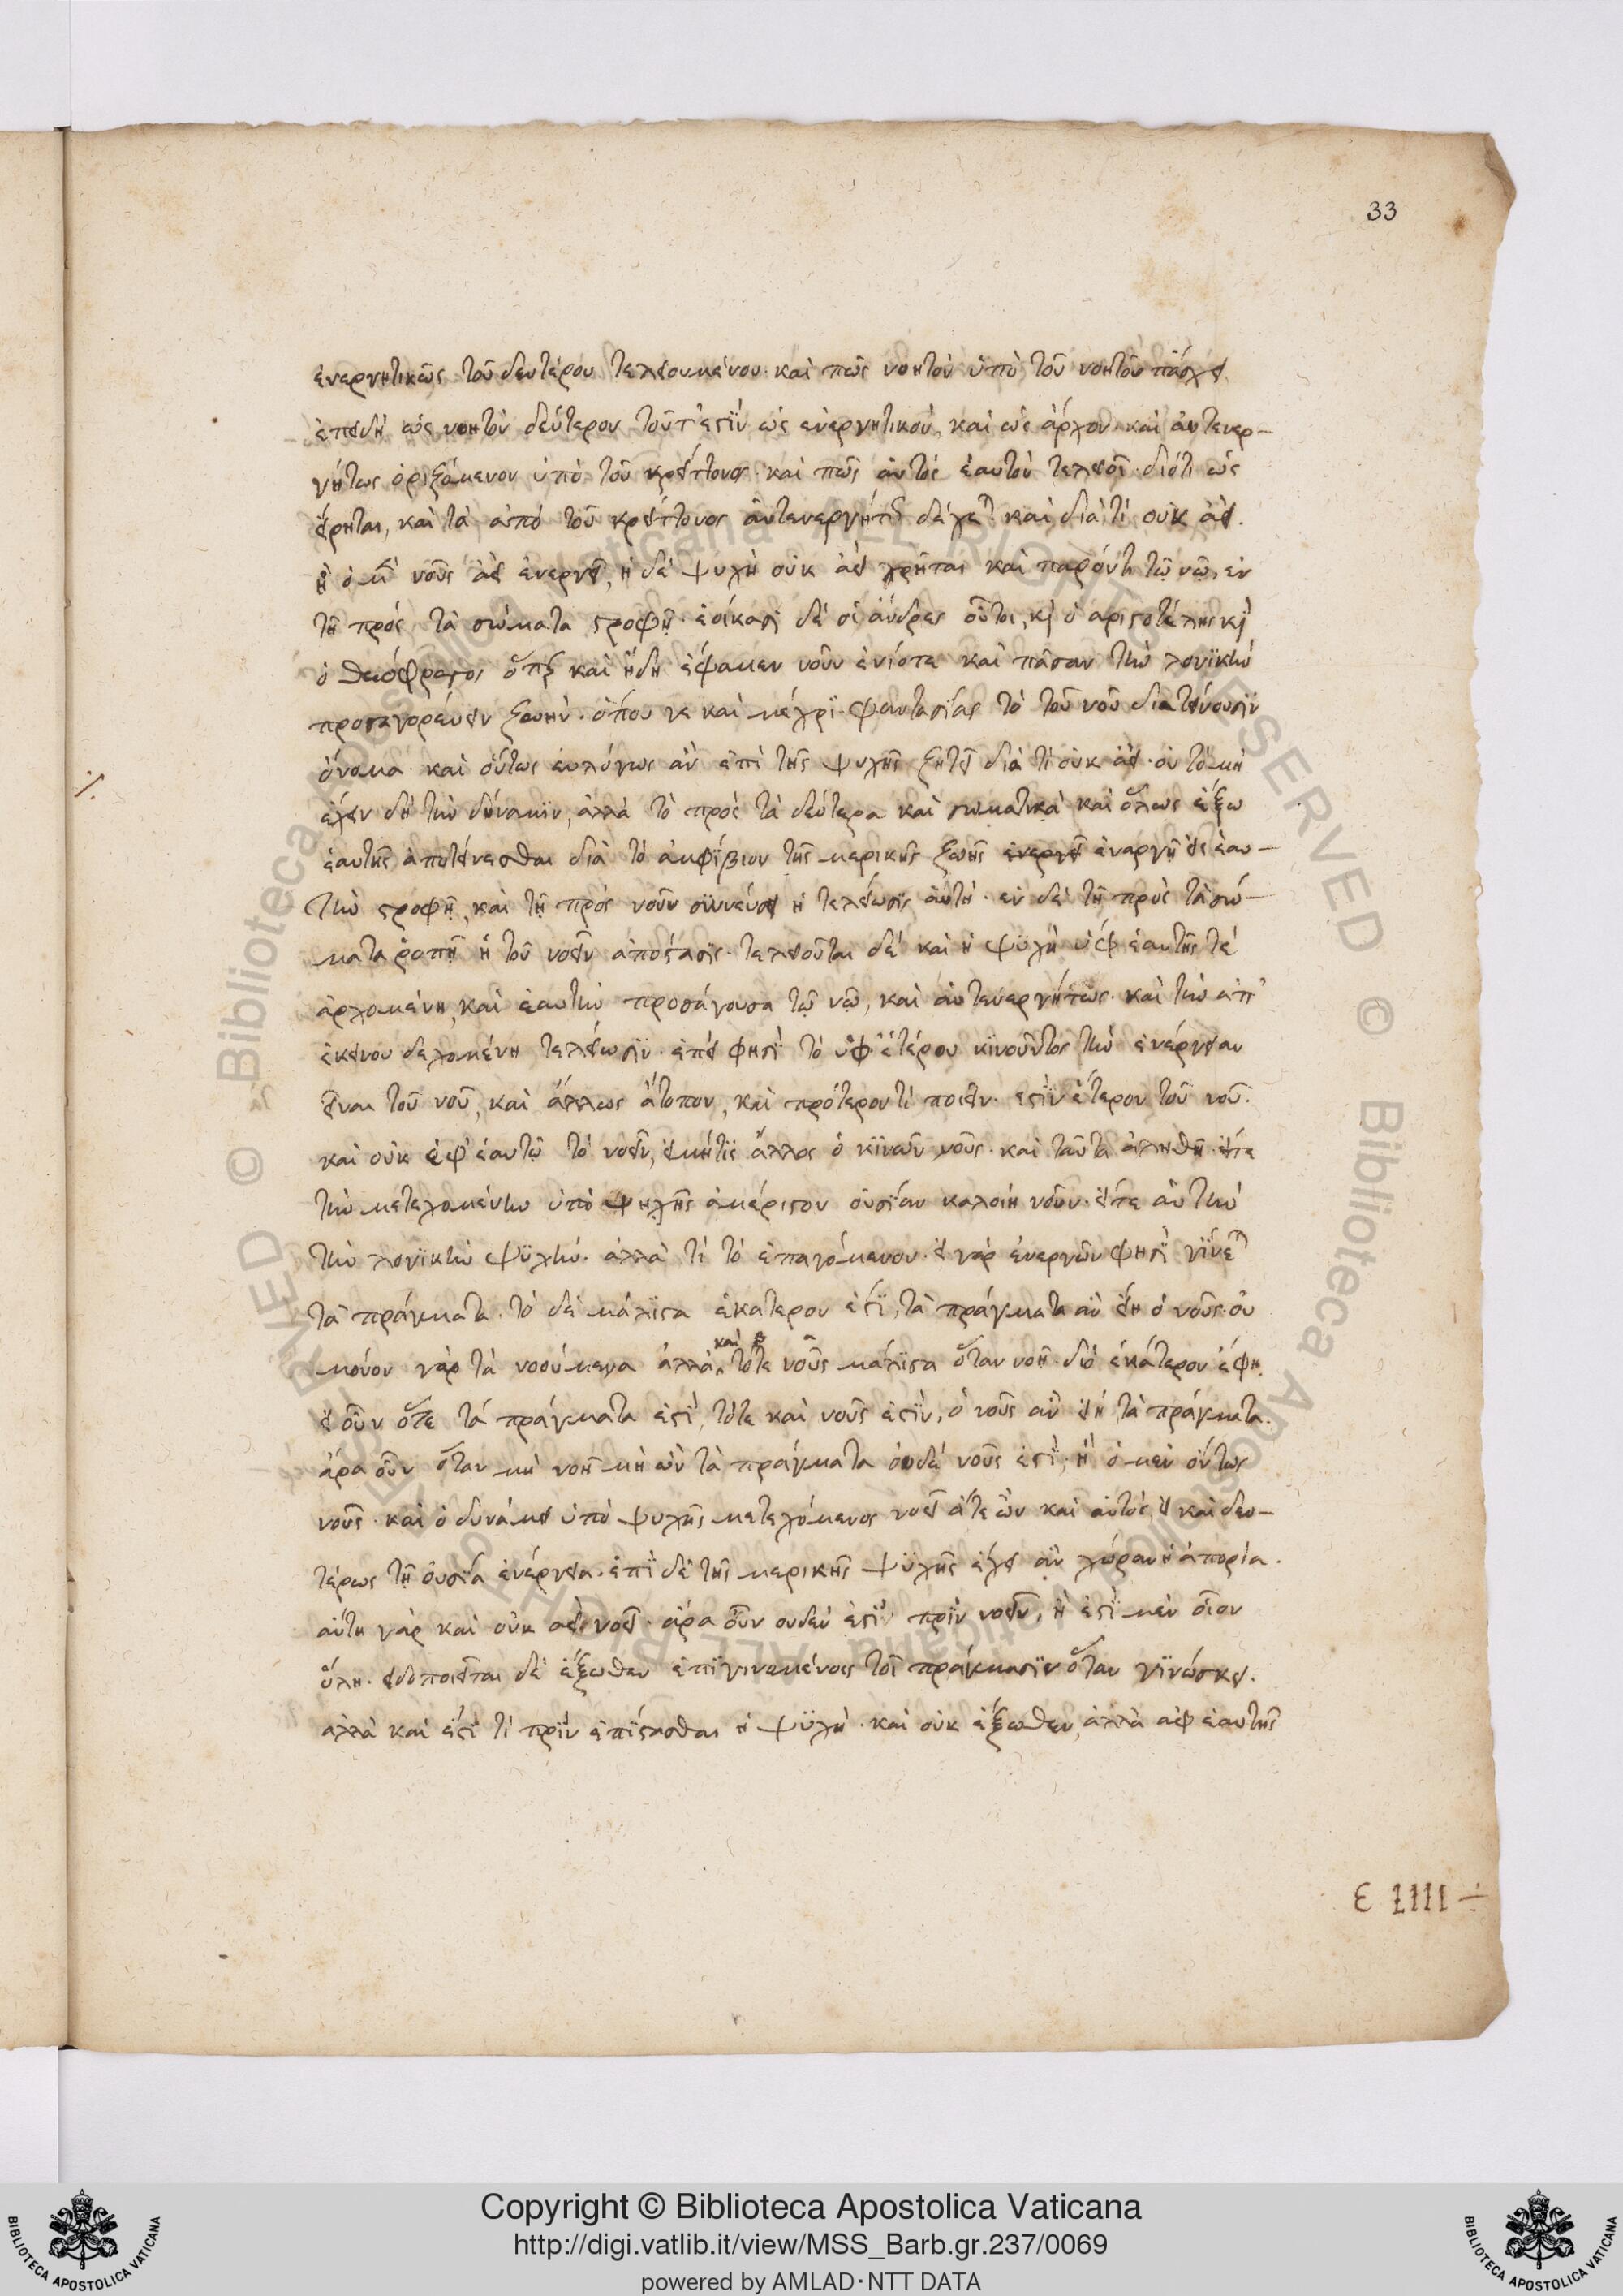 33
ἐνεργητικῶς τοῦ δευτέρου τελειουμένου· καὶ πῶς νοητὸν ὑπὸ τοῦ νοητοῦ πάσχει.
ἐπειδὴ ὡς νοητὸν δεύτερον τοῦτ' ἐστὶν ὡς ἐνεργητικοῦ, καὶ ὡς ἀρχον καὶ αὐτενερ-
γήτως ὁριζόμενον ὑπὸ τοῦ κρείττονος· καὶ πῶς αὐτὸς ἑαυτὸν τελειοῖ· διότι ὡς
εἴρηται, καὶ τὰ ἀπὸ τοῦ κρείττονος αὐτενεργήτως δέχεται καὶ διὰ τί οὐκ ἀεί.
ἢ ὁ μὲν νοῦς ἀεὶ ἐνεργεῖ, ἡ δὲ ψυχὴ οὐκ ἀεὶ χρῆται καὶ παρόντι τῷ νῷ, ἐν
τῇ πρὸς τὰ σώματα στροφῇ· ἐοίκασι δὲ οἱ ἄνδρες οὗτοι, κὶ ὁ αριστοτέλης κὶ
ὁ θεόφραστος ὅπερ καὶ ἤδη ἔφαμεν νοῦν ἐνίοτε καὶ πᾶσαν τὴν λογϊκὴν
προσαγορεύειν ζωὴν· ὅπου γε καὶ μέχρϊ φαντασΐας τὸ τοῦ νοῦ διατείνουσϊν
ὄνομα· καὶ οὕτως εὐλόγως ἂν ἐπὶ τῆς ψυχῆς ζητεῖ διὰ τί οὐκ ἀεί· οὐ τὸ μὴ
ἔχειν δὴ τὴν δύναμϊν, ἀλλὰ τὸ πρὸς τὰ δεύτερα καὶ σωματικὰ καὶ ὅλως ἔξω
ἑαυτῆς ἀποτείνεσθαι διὰ τὸ ἀμφίβιον τῆς μερικῆς ζωῆς ἐνεργεῖ ἐναργῇ εἰς ἑαυ-
τὴν στροφῇ, καὶ τῇ πρὸς νοῦν σϋννεύσει ἡ τελείωσϊς αὐτὴ· ἐν δὲ τῇ πρὸς τὰ σώ-
ματα ῥοπῇ ἡ τοῦ νοεῖν ἀπόστασϊς· τελειοῦται δὲ καὶ ἡ ψϋχὴ ὑφ ἑαυτῆς τὲ
ἀρχομένη, καὶ ἑαυτὴν προσάγουσα τῷ νῷ, καὶ αὐτενεργήτως· καὶ τὴν ἀπ'
ἐκείνου δεχομένη τελείωσϊν· ἐπεί φησϊ τὸ ὑφ' ἑτέρου κϊνοῦντος τὴν ἐνέργειαν
εἶναι τοῦ νοῦ, καὶ ἄλλως ἄτοπον, καὶ πρότερον τί ποιεῖν· ἐστϊν ἕτερον τοῦ νοῦ.
καὶ οὐκ ἐφ' ἑαυτῷ τὸ νοεῖν, εἰ μήτϊς ἄλλος ὁ κϊνῶν νοῦς· καὶ ταῦτα ἀληθῆ· εἴτε
τὴν μετεχομένην ὑπὸ ψηχῆς ἀμέριστον οὐσΐαν καλοίη νοῦν· εἴτε αὐτὴν
τὴν λογϊκὴν ψϋχὴν· ἀλλὰ τί τὸ ἐπαγόμενον· εἰ γὰρ ἐνεργῶν φησὶ γΐνεται
τὰ πράγματα· τὸ δὲ μάλϊστα ἑκάτερον ἐστΐ, τὰ πράγματα ἂν εἴη ὁ νοῦς· οὐ
μόνον γὰρ τὰ νοούμενα ἀλλὰ καὶ τότε νοῦς μάλϊστα ὅταν νοῇ· διὸ ἑκάτερον ἔφη.
εἰ οὖν ὅτε τὰ πράγματα ἐστὶ, τότε καὶ νοῦς ἐστϊν, ὁ νοῦς ἂν εἴη τὰ πράγματα.
ἆρα οὖν ὅταν μὴ νοῇ μὴ ὢν τὰ πράγματα οὐδὲ νοῦς ἐστϊ· ἢ ὁ μὲν ὄντως
νοῦς· καὶ ὁ δυνάμει ὑπὸ ψυχῆς μετεχόμενος νοεῖ ἅτε ὢν καὶ αὐτὸς εἰ καὶ δευ-
τέρως τῇ οὐσΐα ἐνέργεια· ἐπῒ δὲ τῆς μερικῆς ψϋχῆς ἔχει ἂν χώραν ἡ ἀπορία.
αὕτη γὰρ καὶ οὐκ αεὶ νοεῖ· ἆρα οὖν οὐδέν ἐστῒ πρῒν νοεῖν, ἢ ἐστῒ μὲν οἷον
ὕλη· εἰδοποιεῖται δὲ ἔξωθεν ἐπϊγινομένοις τοῖς πράγμασϊν ὅταν γϊνώσκει.
ἀλλὰ καὶ ἐστϊ τὶ πρῒν ἐπΐστασθαι ἡ ψϋχὴ· καὶ οὐκ ἔξωθεν, ἀλλὰ αφ ἑαυτῆς
Copyright © Biblioteca Apostolica Vaticana
http://digi.vatlib.it/view/MSS_Barb.gr.237/0069
powered by AMLAD·NTT DATA